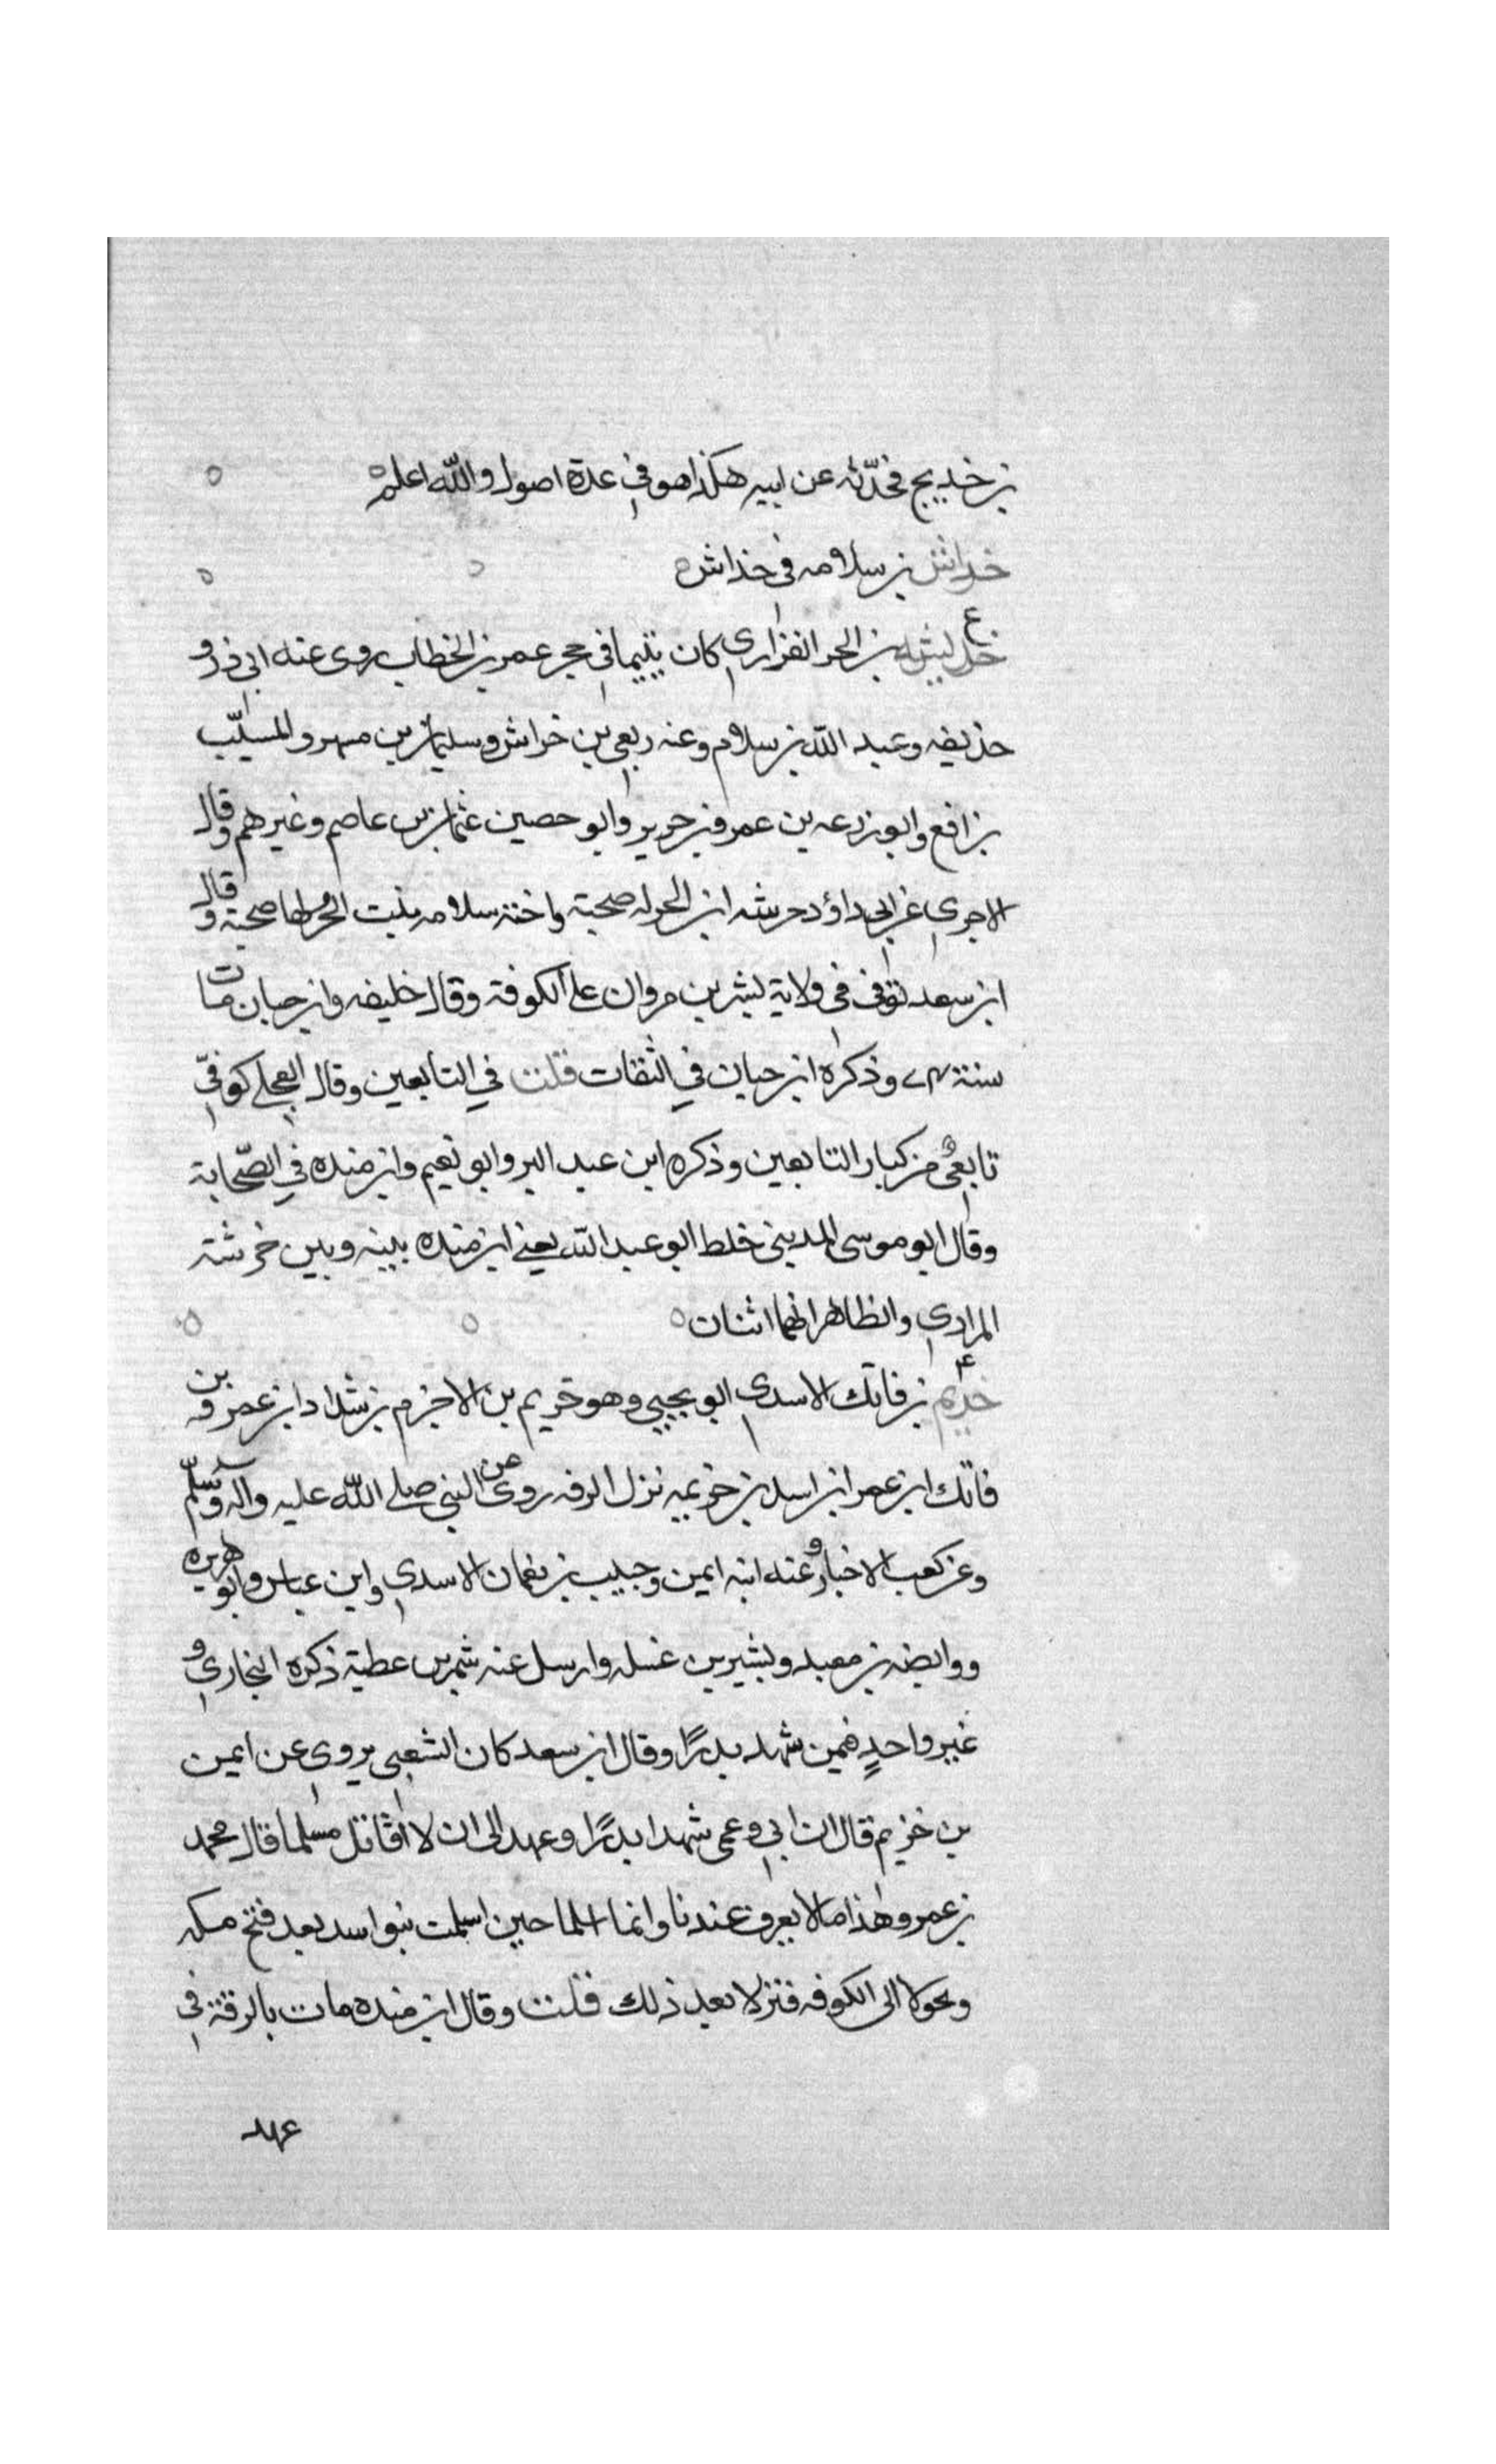 بن خديج فحدثه عن ابيه هكذا هو في عدة اصول والله اعلم ه ه
خداش بن سلامه في خداش ه ه ه
ع
خرشه بن الحر الفزاري كان يتيما في حجر عمر بن الخطاب روى عنه ابي ذر و
حذيفه وعبد الله بن سلام وعنه ربعي بن خراش وسليمان بن مسهر والمسيّب
بن رافع وابو زرعه بن عمرو بن جرير وابو حصين عثمان بن عاصم وغيرهم وقال
الاجري عن ابي داؤد خرشه ابن الحر له صحبة واخته سلامه بنت الحُر لها صحبة وقال
ابن سعد توفى في ولاية بشر بن مروان على الكوفة وقال خليفه وابن حبان مات
سنة ٧٤ وذكره ابن حبان في الثقات قلت في التابعين وقال العجلي كوفيّ
تابعىٌ من كبار التابعين وذكره ابن عبد البر وابو نعيم وابن منده في الصّحابة
وقال ابو موسى المديني خلط ابو عبد الله يعني ابن منده بينه وبين خرشة
المرادي والظاهر انهما اثنان ه ه ه
٤
خريم بن فاتك الاسدي ابو يحيي وهو خريم بن الاخرم بن شداد ابن عمرو بن
فاتك ابن عمر ابن اسد بن خزيمه نزل الرقه روى عن النبي صلى الله عليه وآله وسلّم
وعن كعب الاخبار وعنه ابنه ايمن وحبيب بن نعمان الاسدي وابن عباس وابو هريره
ووابصه بن معبد وبشير بن غسله وارسل عنه شمر بن عطية ذكره البخاري و
غير واحدٍ فيمن شهد بدرًا وقال ابن سعد كان الشعبي يروي عن ايمن
بن خزيم قال ان ابي وعمى شهدا بدرًا وعهدا الى ان لا اقاتل مسلما قال محمد
بن عمر وهذا مما لا يعرف عندنا وانما اسلما حين اسلمت بنو اسد بعد فتح مكه
وتحولا الى الكوفه فنزلا بعد ذلك قلت وقال ابن منده مات بالرقة في
عهد